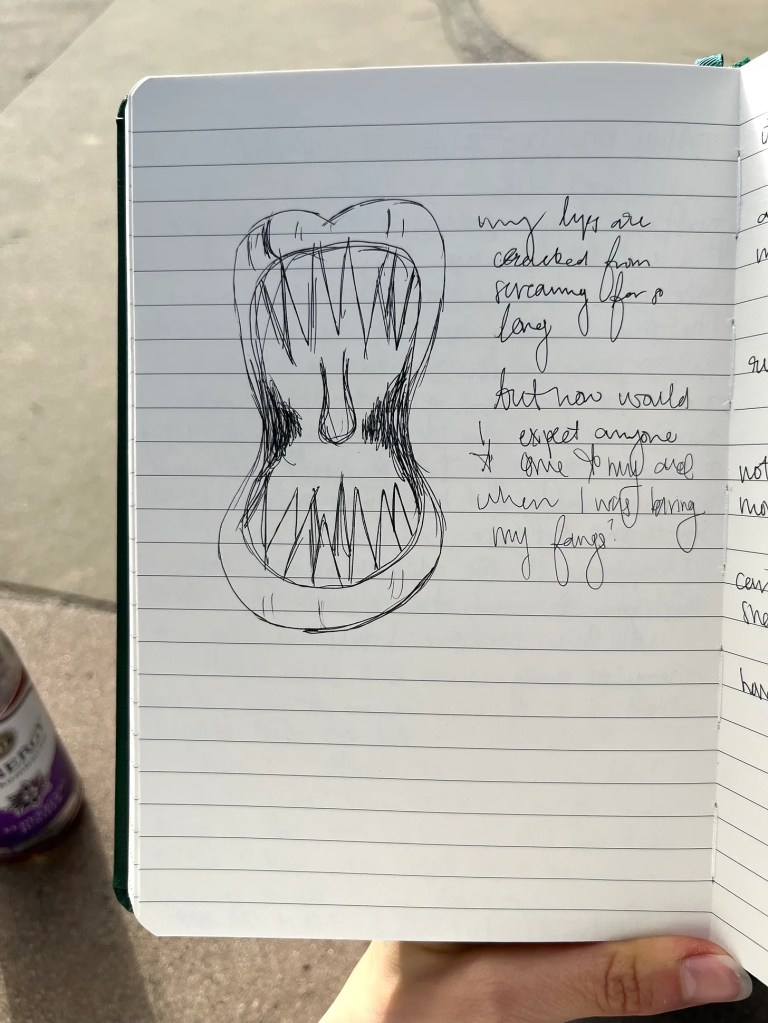 my lips are
cracked from
screaming for so
long
but how would
I expect anyone
to come to my aid
when I was baring
my fangs?
not